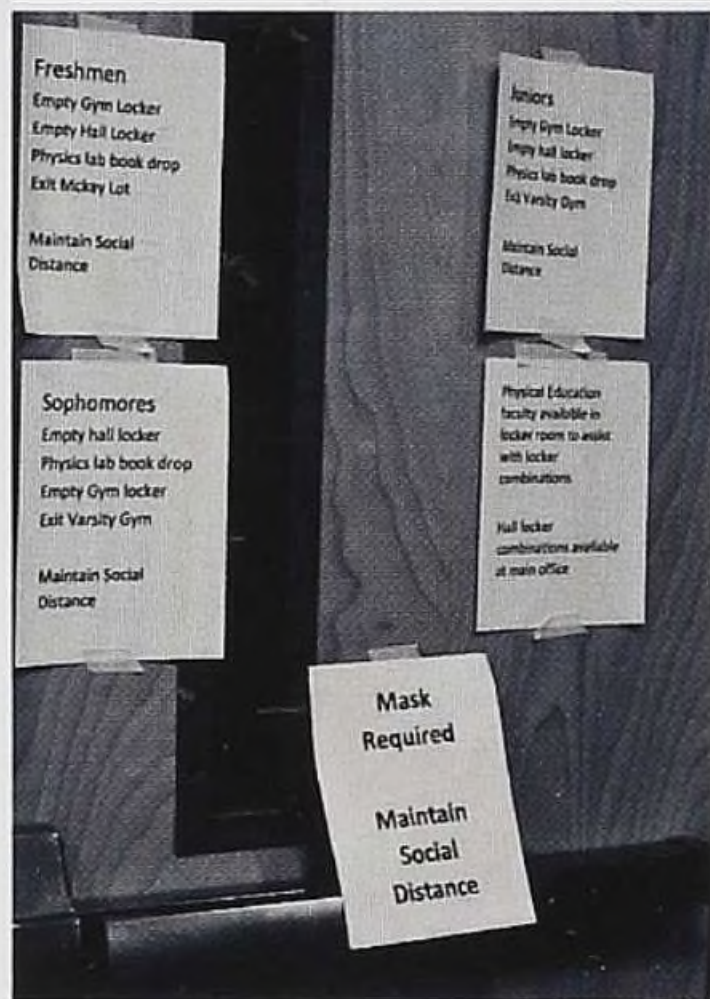 Freshmen
Empty Gym Locker
Empty Hall Locker
Physics lab book drop
Exit Mckay Lot
Maintain Social
Distance
Sophomores
Empty hall locker
Physics lab book drop
Empty Gym locker
Exit Varsity Gym
Maintain Social
Distance
Juniors
Empty Gym Locker
Empy hall locker
Physics lab book drop
Exit Varsity Gym
Maintain Social
Distance
Physical Education
faculty available in
locker room to assist
with locker
combinations
Hall locker
combinations available
at main office
Mask
Required
Maintain
Social
Distance